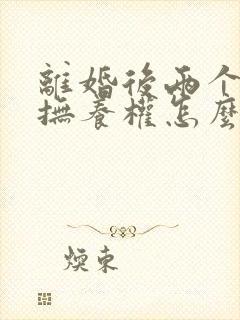 離婚後兩个
撫養權怎麼
煥東